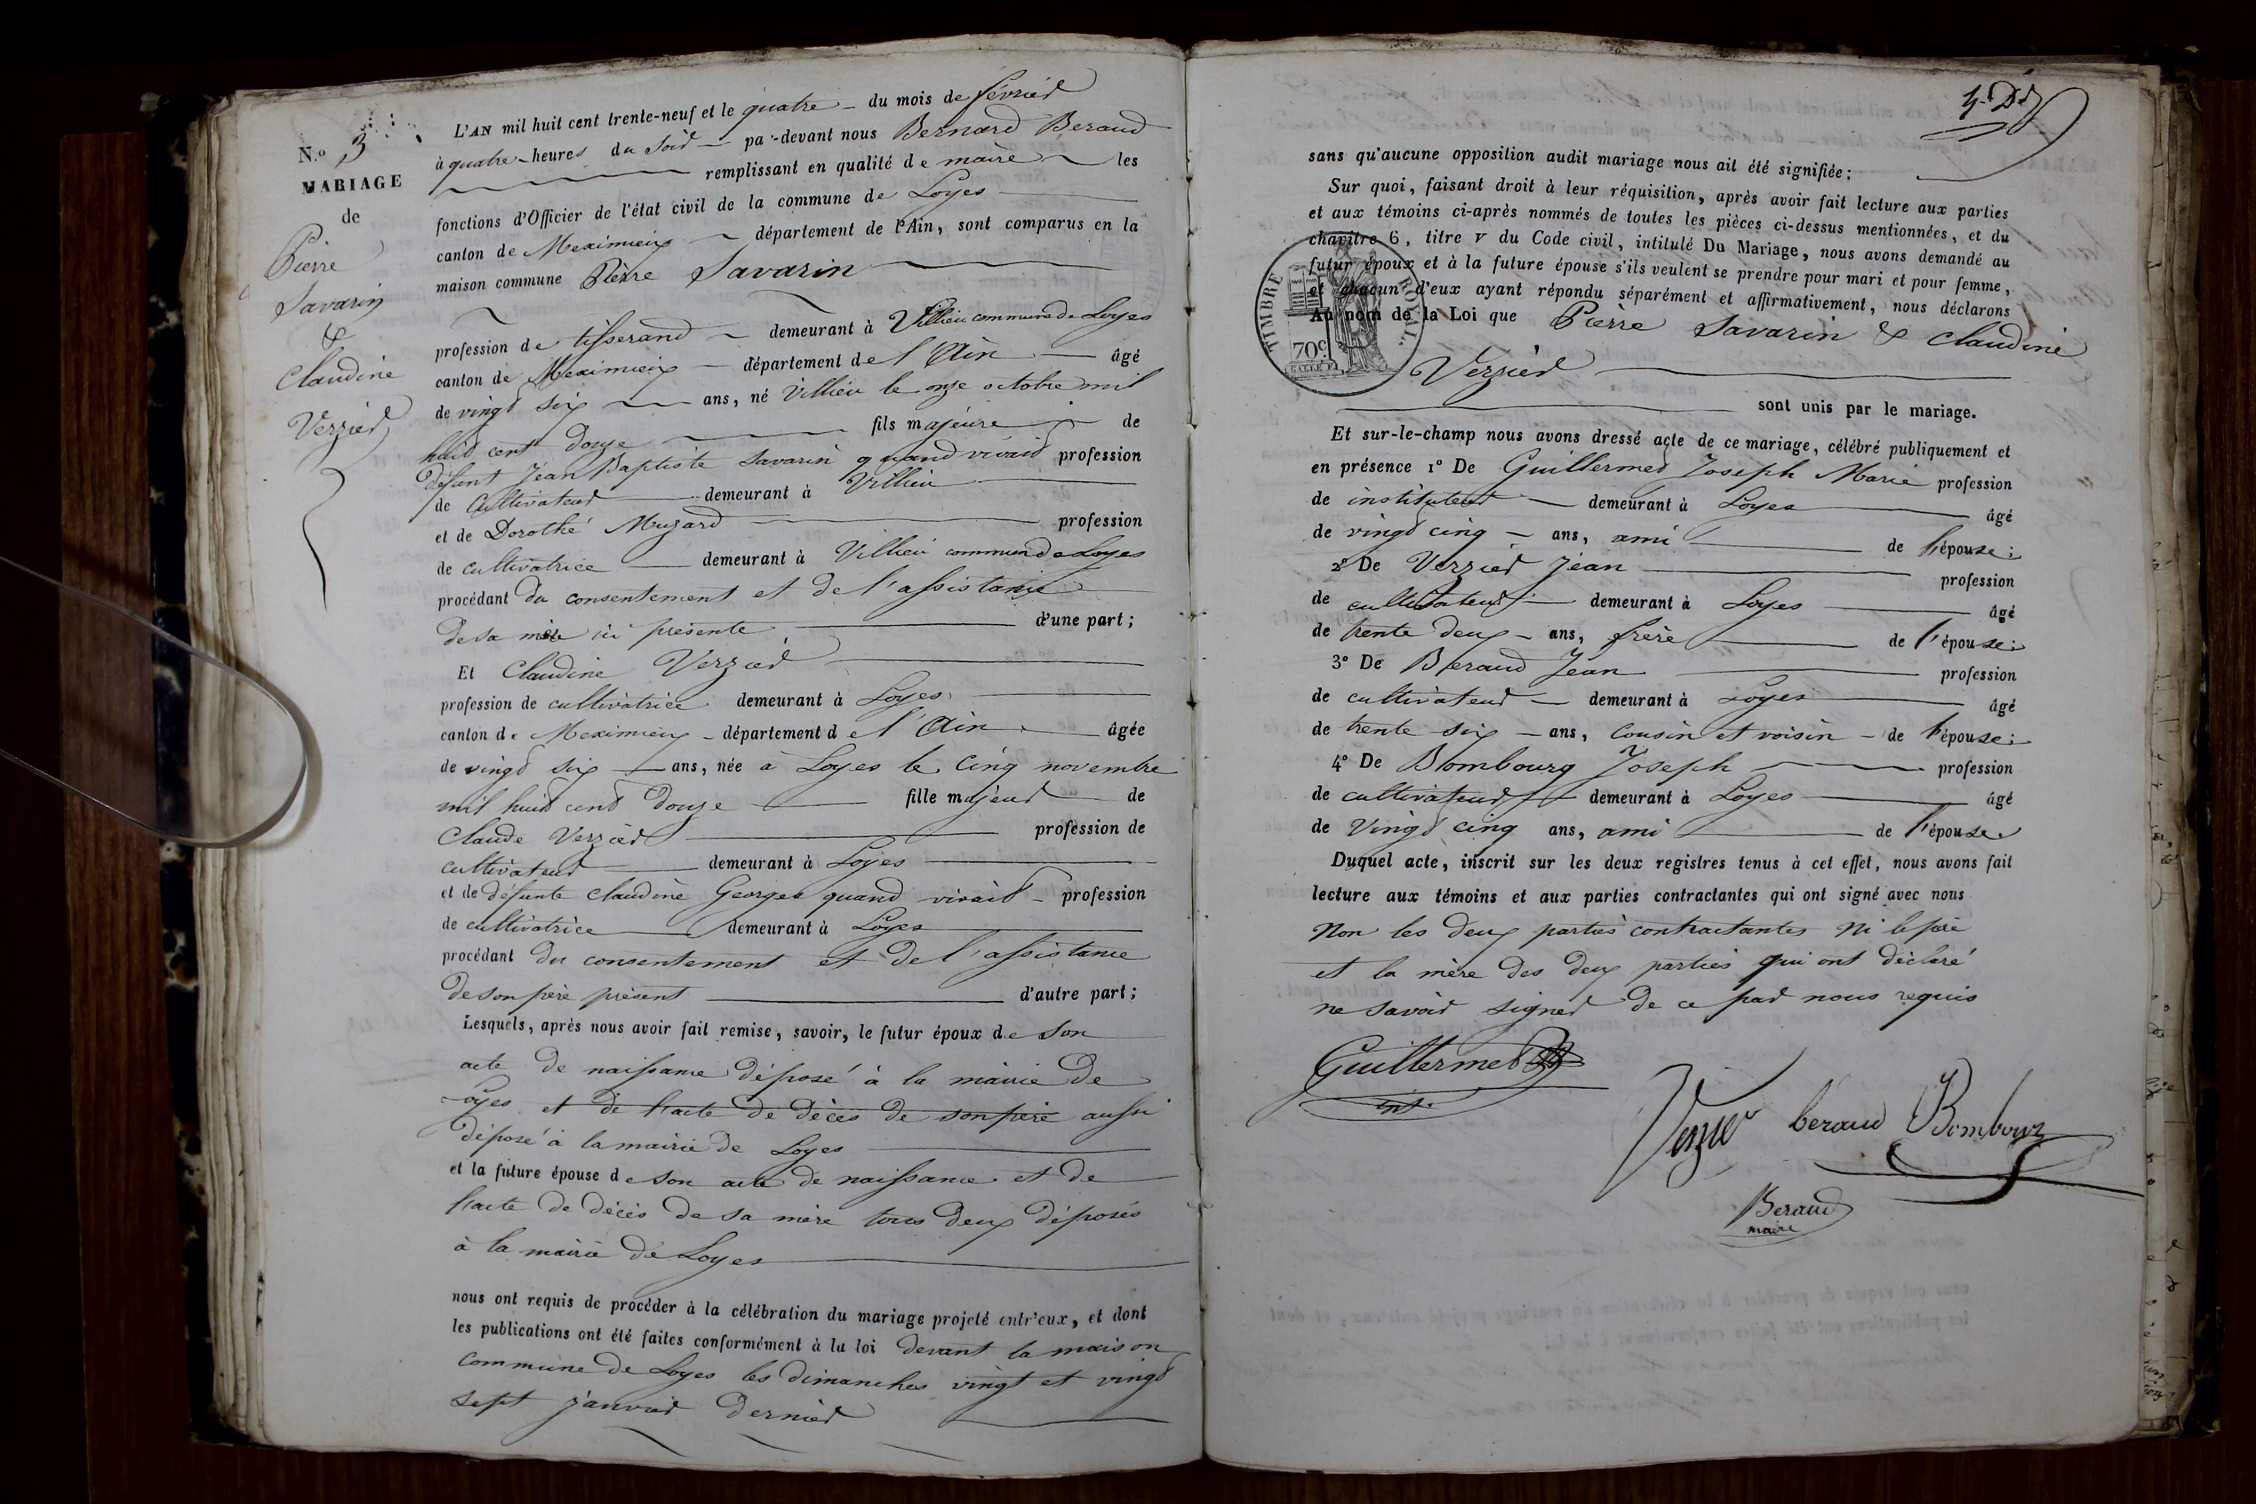 N.o 3
MARIAGE
de
Pierre
Savarin
&
Claudine
Verzier
L'AN mil huit cent trente-neuf et le quatre du mois de février
à quatre heures du soir pa-devant nous Bernard Beraud
remplissant en qualité de maire les
fonctions d'Officier de l'état civil de la commune de Loyes
canton de Meximieux département de l'Ain, sont comparus en la
maison commune Pierre Savarin
profession de tisserand demeurant à Villieu commune de Loyes
canton de Meximieux département de l'Ain âgé
de vingt six ans, né Villieu le onze octobre mil
huit cent douze fils majeure de
défunt Jean Baptiste Savarin quand vivait profession
de Cultivateur demeurant à Villieu
et de Dorothé Muzard profession
de cultivatrice demeurant à Villieu commune de Loyes
procédant du consentement et de l'assistance
de sa mère ici présente d'une part;
Et Claudine Verzier
profession de cultivatrice demeurant à Loyes
canton de Meximieux département de l'Ain âgée
de vingt six ans, née à Loyes le cinq novembre
mil huit cent douze fille majeur de
Claude Verzier profession de
cultivateur demeurant à Loyes
et de défunte Claudine Georges quand vivait profession
de cultivatrice demeurant à Loyes
procédant du consentement et de l'assistance
de son père présent d'autre part;
Lesquels, après nous avoir fait remise, savoir, le futur époux de son
acte de naissance déposé à la mairie de
Loyes et de l'acte de décès de son père aussi
déposé à la mairie de Loyes
et la future épouse de son acte de naissance et de
l'acte de décès de sa mère tous deux déposés
à la mairie de Loyes
nous ont requis de procéder à la célébration du mariage projeté entr'eux, et dont
les publications ont été faites conformément à la loi devant la maison
commune de Loyes les dimanches vingt et vingt
sept janvier dernier
sans qu'aucune opposition audit mariage nous ait été signifiée;
Sur quoi, faisant droit à leur réquisition, après avoir fait lecture aux parties
et aux témoins ci-après nommés de toutes les pièces ci-dessus mentionnées, et du
chapitre 6, titre V du Code civil, intitulé Du Mariage, nous avons demandé au
futur époux et à la future épouse s'ils veulent se prendre pour mari et pour femme,
et chacun d'eux ayant répondu séparément et affirmativement, nous déclarons
Au nom de la Loi que Pierre Savarin & Claudine
TIMBRE ROYAL.
70c.
Verzier
sont unis par le mariage.
Et sur-le-champ nous avons dressé acte de ce mariage, célébré publiquement et
en présence 1º De Guillermet Joseph Marie profession
de instituteur demeurant à Loyes âgé
de vingt cinq ans, ami de l'épouse;
2º De Verzier Jean profession
de cultivateur demeurant à Loyes âgé
de trente deux ans, frère de l'épouse;
3º De Beraud Jean profession
de cultivateur demeurant à Loyes âgé
de trente six ans, cousin et voisin de l'épouse;
4º De Bombourg Joseph profession
de cultivateur demeurant à Loyes âgé
de vingt cinq ans, ami de l'épouse
Duquel acte, inscrit sur les deux registres tenus à cet effet, nous avons fait
lecture aux témoins et aux parties contractantes qui ont signé avec nous
Non les deux parties contractantes Ni le père
et la mère des deux parties qui ont déclaré
ne savoir signer de ce par nous requis
Guillermet
inst.
Verzier beraud Bombour
Beraud
maire